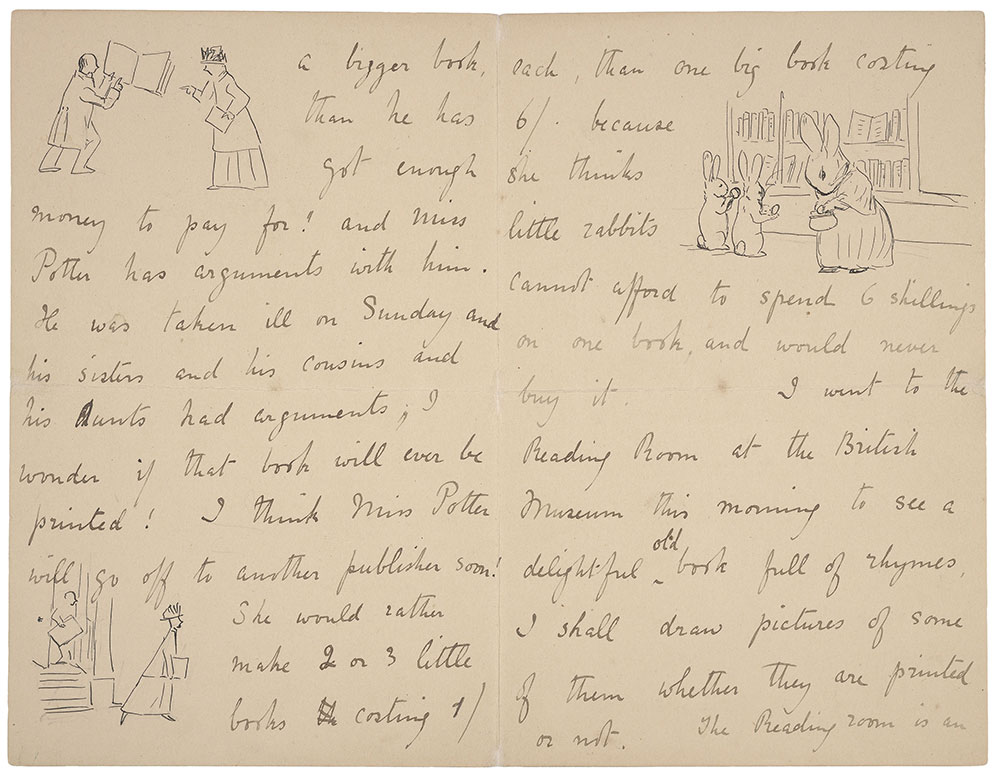 a bigger book,
than he has
got enough
money to pay for! and Miss
Potter has arguments with him.
He was taken ill on Sunday and
his sisters and his cousins and
his Aunts had arguments; I
wonder if that book will ever be
printed! I think Miss Potter
will go off to another publisher soon!
She would rather
make 2 or 3 little
books costing 1/
each, than one big book costing
6/. because
she thinks
little rabbits
cannot afford to spend 6 shillings
on one book, and would never
buy it. I went to the
Reading Room at the British
Museum this morning to see a
delightful old book full of rhymes,
I shall draw pictures of some
of them whether they are printed
or not. The Reading room is an